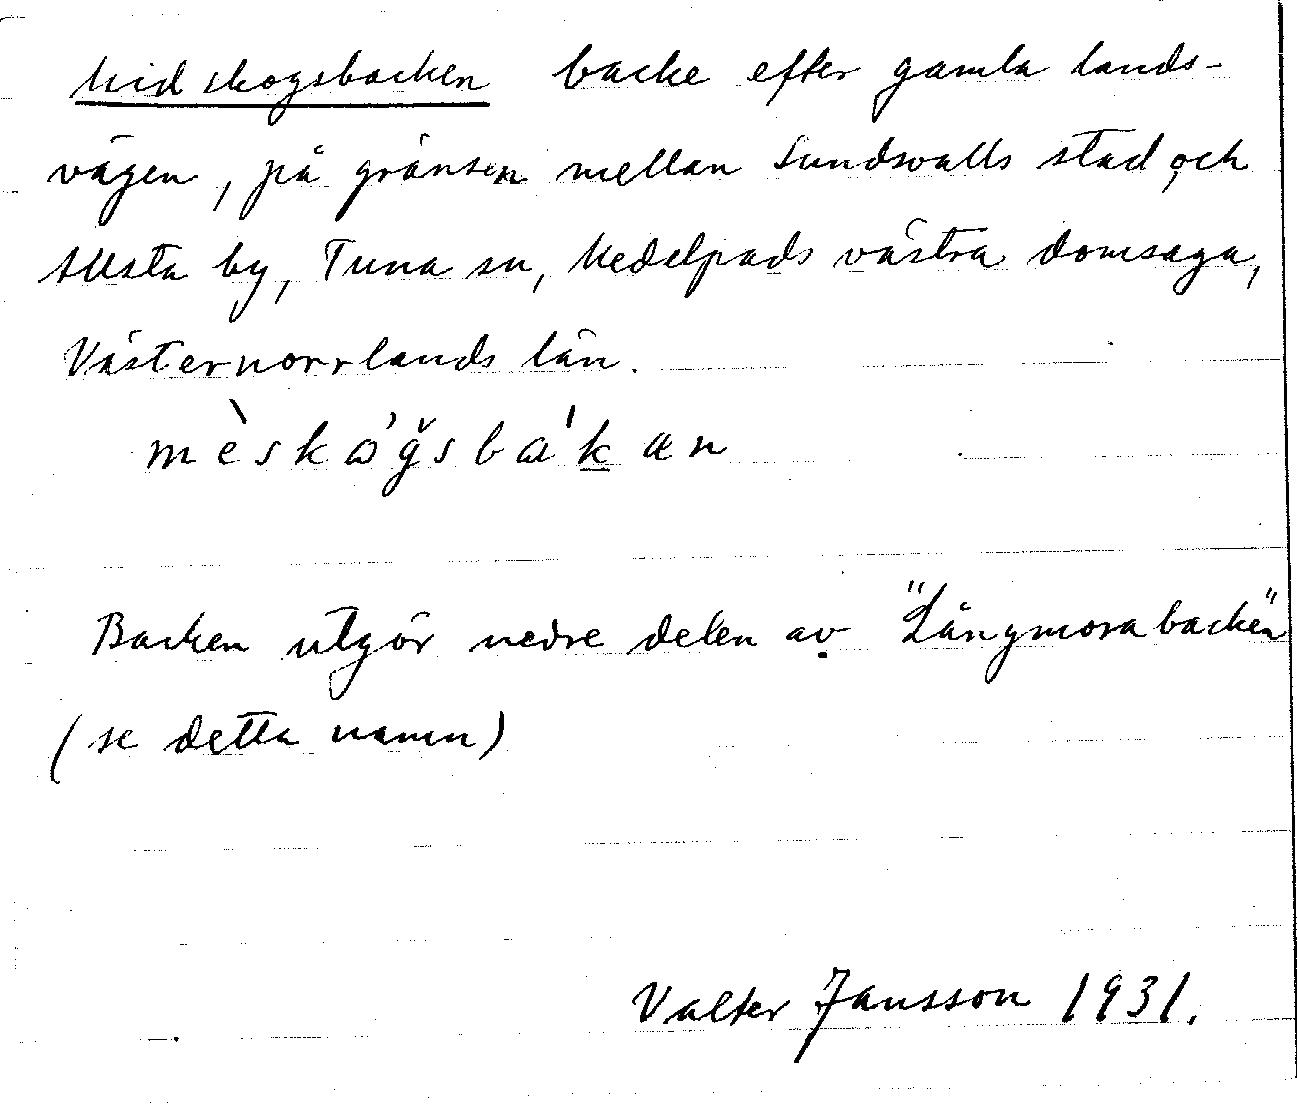 Midskogsbacken backe efter gamla lands-
vägen, på gränsen mellan Sundsvalls stad och
Allsta by, Tuna sn, Medelpads västra domsaga,
Västernorrlands län.
mèskɷ́ğsba̍k̲an
Backen utgör nedre delen av "Långmorabacken"
(se detta namn)
Valter Jansson 1931.